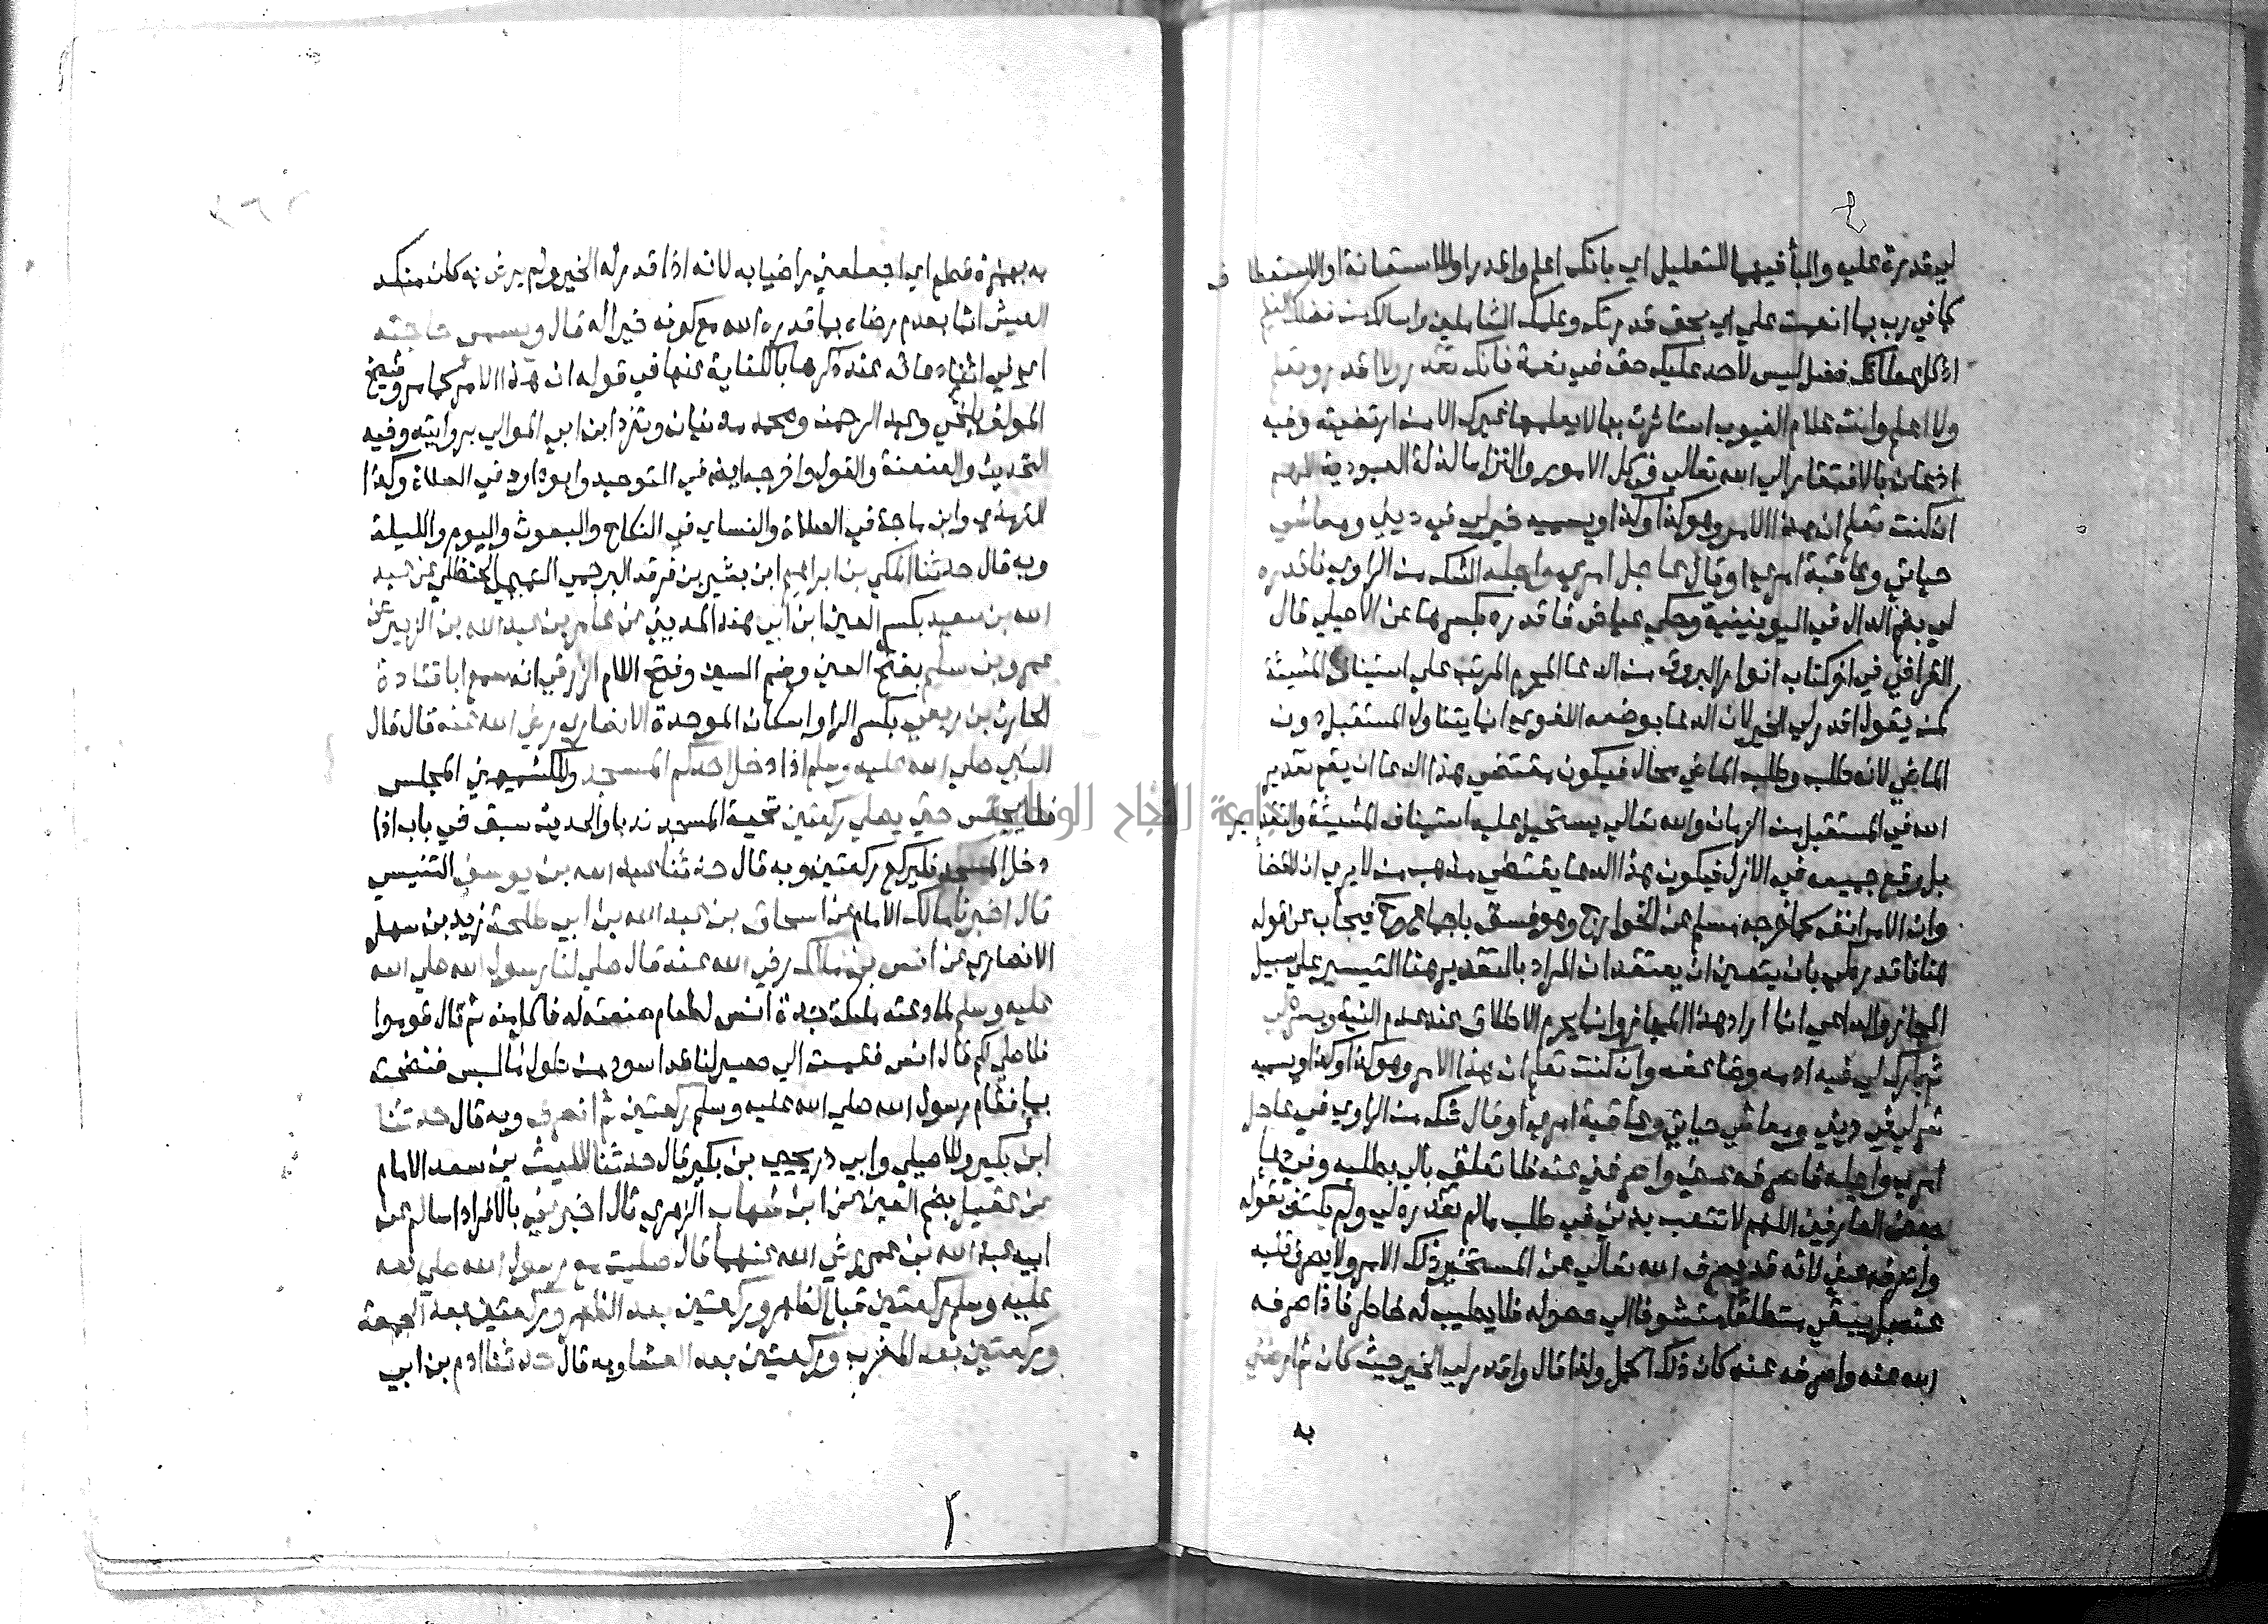 لي قدرة عليه والبا فيهما للتعليل اي بانك اعلم واقدر او للاستعانة او للاستعطاف
كما في رب بما انعمت علي اي بحق قدرتك وعلمك الشاملين واسالك من فضلك العظيم
اذ كل عطائك فضل ليس لاحد عليك حق في نعمة فانك تقدر ولا اقدر وتعلم
ولا اعلم وانت علام الغيوب استاثرت بها لا يعلمها غيرك الا من ارتضيته وفيه
اذعان بالافتقار الي الله تعالي في كل الامور والتزام لذلة العبودية اللهم
ان كنت تعلم ان هذا الامر وهو كذا وكذا ويسميه خير لي في ديني ومعاشي
حياتي وعاقبة امري او قال عاجل امري واجله الشك من الراوي فاقدره
لي بضم الدال في اليونينية وحكي عياض فاقدره بكسرها عن الاصيلي قال
القرافي في اخر كتاب انوار البروق من الدعا المحرم المرتب علي استيناف المشيئة
كمن يقول اقدر لي الخير لان الدعا بوضعه اللغوي انما يتناول المستقبل دون
الماضي لانه طلب وطلب الماضي محال فيكون مقتضي هذا الدعا ان يقع تقدير
الله في المستقبل من الزمان والله تعالي يستحيل عليه استيناف المشيئة والتقدير
بل وقع جميعه في الازل فيكون هذا الدعا يقتضي مذهب من لا يري ان لا قضا
وان الامر انف كما خرجه مسلم عن الخوارج وهو فسق باجماع فيجاب عن قوله
هنا فاقدره لي بان يتعين ان يعتقد ان المراد بالتقدير هنا التيسير علي سبيل
المجاز والداعي انما اراد هذا المجاز وانما يحرم الاطلاق عند عدم النية ويسره لي
ثم بارك لي فيه ادمه وضاعفه وان كنت تعلم ان هذا الامر وهو كذا وكذا ويسميه
شر لي في ديني ومعاشي حياتي وعاقبة امري او قال شك من الراوي في عاجل
امري واجله فاصرفه عني واصرفني عنه فلا تعلق بالي بطلبه وفي دعا
بعض العارفين اللهم لا تتعب بدني في طلب مالم تقدره لي ولم يكتف بقوله
واصرفه عني لانه قد يصرف الله تعالي عن المستخير ذلك الامر ولا يصرف قلبه
عنه بل يبقي متطلعا متشوفا الي حصوله فلا يطيب له خاطر فاذا صرفه
الله عنه واصرفه عنه كان ذلك اكمل ولذا قال واقدر لي الخير حيث كان ثم ارضني
به
به بهمزة قطع اي اجعلني راضيا به لانه اذا قدر له الخير ولم يرض به كان منكد
العيش اثما بعدم رضاه بما قدره الله مع كونه خيرا له قال ويسمي حاجته
اي في اثناء دعائه عند ذكرها بالكناية عنها في قوله ان هذا الامر كما مر وشيخ
المولف بلخي وعبد الرحمن ومحمد مدنيان وتفرد ابن ابي الموالي بروايته وفيه
التحديث والعنعنة والقول واخرجه ايضا في التوحيد وابو داود في الصلاة وكذا
الترمذي وابن ماجة في الصلاة والنساي في النكاح والبعوث واليوم والليلة
وبه قال حدثنا المكي بن ابراهيم ابن بشير بن فرقد البرجمي التميمي الحنظلي عن عبد
الله بن سعيد بكسر العين ابن ابي هند المديني عن عامر بن عبد الله بن الزبير عن
عمرو بن سليم بفتح العين وضم السين وفتح اللام الزرقي انه سمع ابا قتادة
الحارث بن ربعي بكسر الرا واسكان الموحدة الانصاري رضي الله عنه قال قال
النبي صلي الله عليه وسلم اذا دخل احدكم المسجد وللكشميهني المجلس
فلا يجلس حتي يصلي ركعتين تحية المسجد ندبا والحديث سبق في باب اذا
دخل المسجد فليركع ركعتين وبه قال حدثنا عبد الله بن يوسف التنيسي
قال اخبرنا مالك الامام عن اسحاق بن عبد الله بن ابي طلحة زيد بن سهل
الانصاري عن انس بن مالك رضي الله عنه قال صلي لنا رسول الله صلي الله
عليه وسلم لما دعته مليكة جدة انس لطعام صنعته له فاكل منه ثم قال قوموا
فلاصلي لكم قال انس فقمت الي حصير لنا قد اسود من طول ما لبس فنضحته
بما فقام رسول الله صلي الله عليه وسلم ركعتين ثم انصرف وبه قال حدثنا
ابن بكير وللاصيلي وابي ذر يحيي بن بكير قال حدثنا الليث بن سعد الامام
عن عقيل بضم العين عن ابن شهاب الزهري قال اخبرني بالافراد سالم عن
ابيه عبد الله بن عمر رضي الله عنهما قال صليت مع رسول الله صلي الله
عليه وسلم ركعتين قبل الظهر وركعتين بعد الظهر وركعتين بعد الجمعة
وركعتين بعد المغرب وركعتين بعد العشا وبه قال حدثنا ادم بن ابي
جامعة النجاح الوطنية